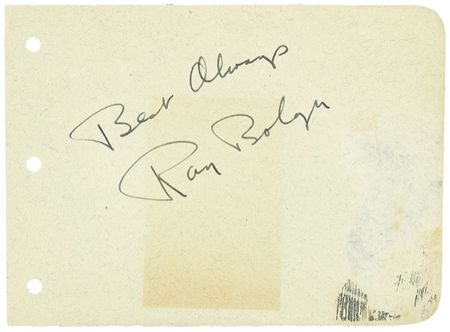 Best Always
Ray Bolger